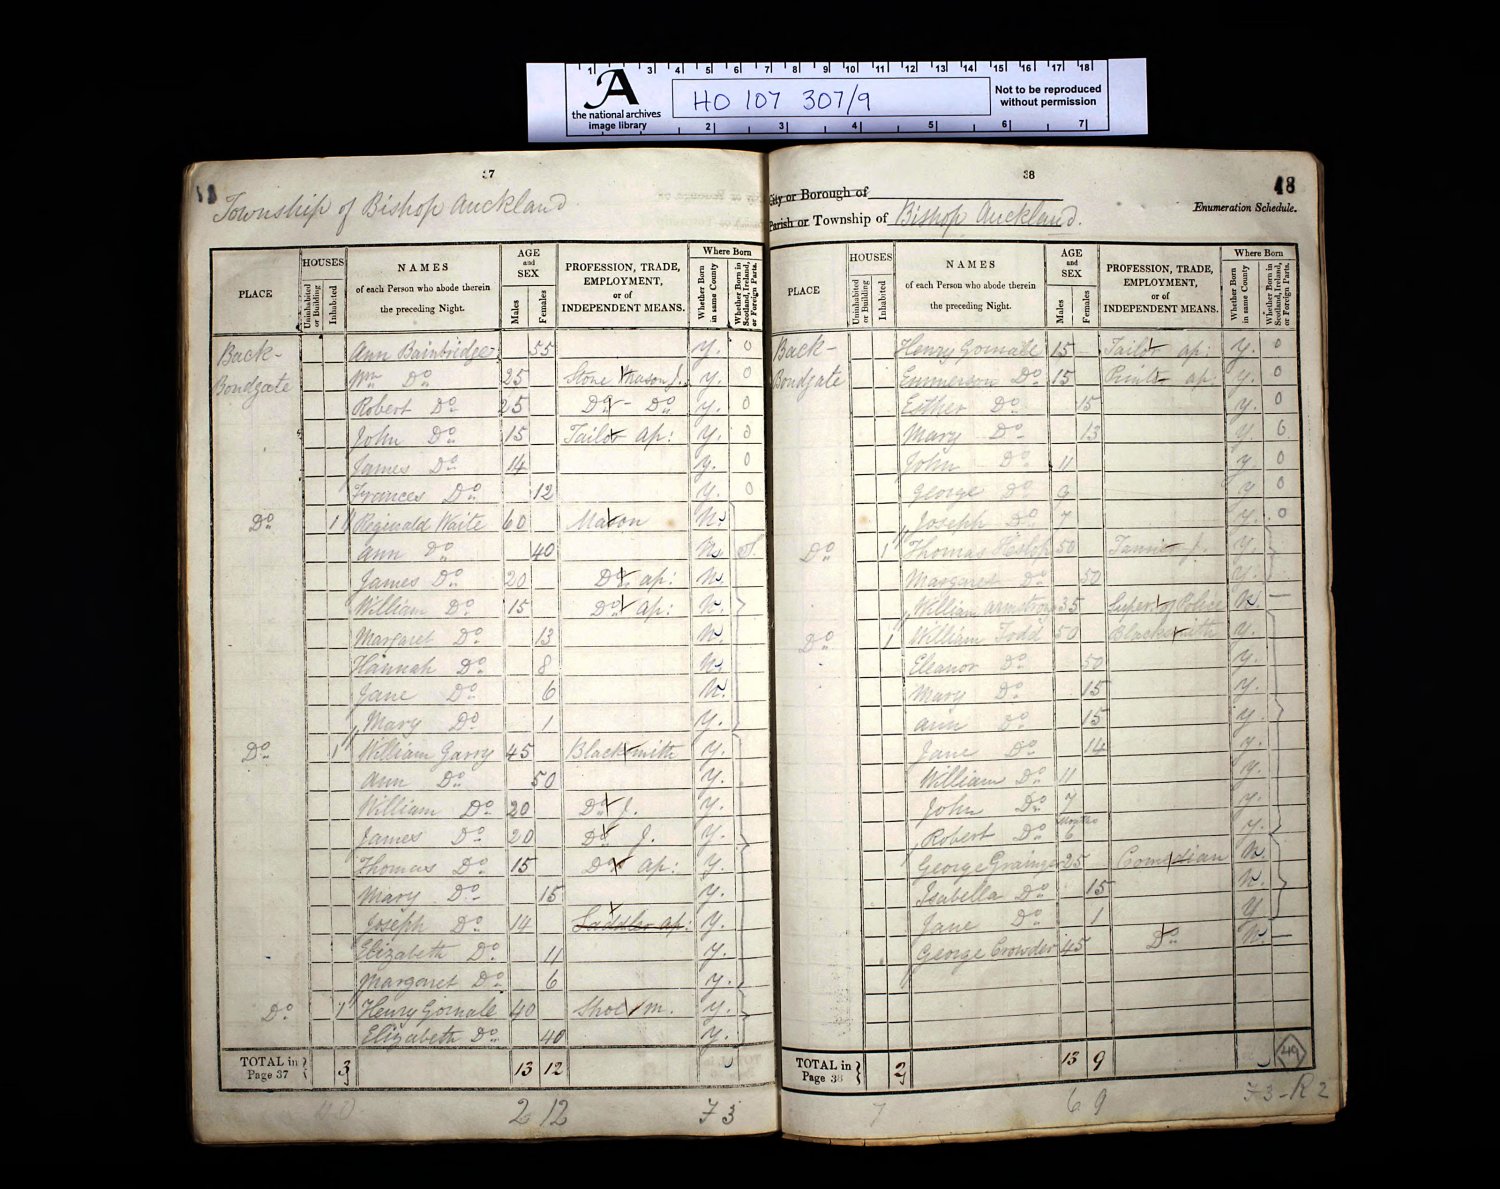 1 3 4 5 6 7 8 9 10 11 12 13 14 15 16 17 18
A
the national archives
image library
HO 107 307/9
Not to be reproduced
without permission
2 3 4 5 6 7
37
Township of Bishop Auckland
PLACE
HOUSES
Uninhabited or Building
Inhabited
NAMES
of each Person who abode therein
the preceding Night.
AGE
and
SEX
Males
Females
PROFESSION, TRADE,
EMPLOYMENT,
or of
INDEPENDENT MEANS.
Where Born
Whether Born in same County
Whether Born in Scotland, Ireland, or Foreign Parts.
Back- Ann Bainbridge 55 y. 0
Bondgate Wm Do 25 Stone Mason J. y. 0
Robert Do 25 Do - Do y. 0
John Do 15 Tailor ap: y. 0
James Do 14 y. 0
Frances Do 12 y. 0
Do 1 Reginald Waite 60 Mason N.
Ann Do 40 N. S.
James Do 20 Do ap: N.
William Do 15 Do ap: N.
Margaret Do 13 N.
Hannah Do 8 N.
Jane Do 6 N.
Mary Do 1 y.
Do 1 William Garry 45 Blacksmith y.
Ann Do 50 y.
William Do 20 Do J. y.
James Do 20 Do J. y.
Thomas Do 15 Do ap: y.
Mary Do 15 y.
Joseph Do 14 Saddler ap: y.
Elizabeth Do 11 y.
Margaret Do 6 y.
Do 1 Henry Gornale 40 Shoe m. y.
Elizabeth Do 40 y.
TOTAL in
Page 37 3 13 12
2 12 F 3
38
48
City or Borough of
Enumeration Schedule.
Parish or Township of Bishop Auckland.
PLACE
HOUSES
Uninhabited or Building
Inhabited
NAMES
of each Person who abode therein
the preceding Night.
AGE
and
SEX
Males
Females
PROFESSION, TRADE,
EMPLOYMENT,
or of
INDEPENDENT MEANS.
Where Born
Whether Born in same County
Whether Born in Scotland, Ireland, or Foreign Parts.
Back- Henry Gornale 15 Tailor ap: y. 0
Bondgate Emmerson Do 15 Printer ap: y. 0
Esther Do 15 y. 0
Mary Do 13 y. 0
John Do 11 y 0
George Do 9 y 0
Joseph Do 7 y. 0
Do 1 Thomas Heslop 50 J. y
Margaret Do 50 y.
William Armstrong 35 Super: of Police N. -
Do 1 William Todd 50 Blacksmith y.
Eleanor Do 50 y.
Mary Do 15 y.
Ann Do 15 y.
Jane Do 14 y.
William Do 11 y.
John Do 7 y.
Robert Do months 6 y.
George Grainger 25 Comedian N.
Isabella Do 15 N.
Jane Do 1 y
George Crowder 45 Do N. -
TOTAL in
Page 38 2 13 9
49
7 6 9 F 3 - R 2